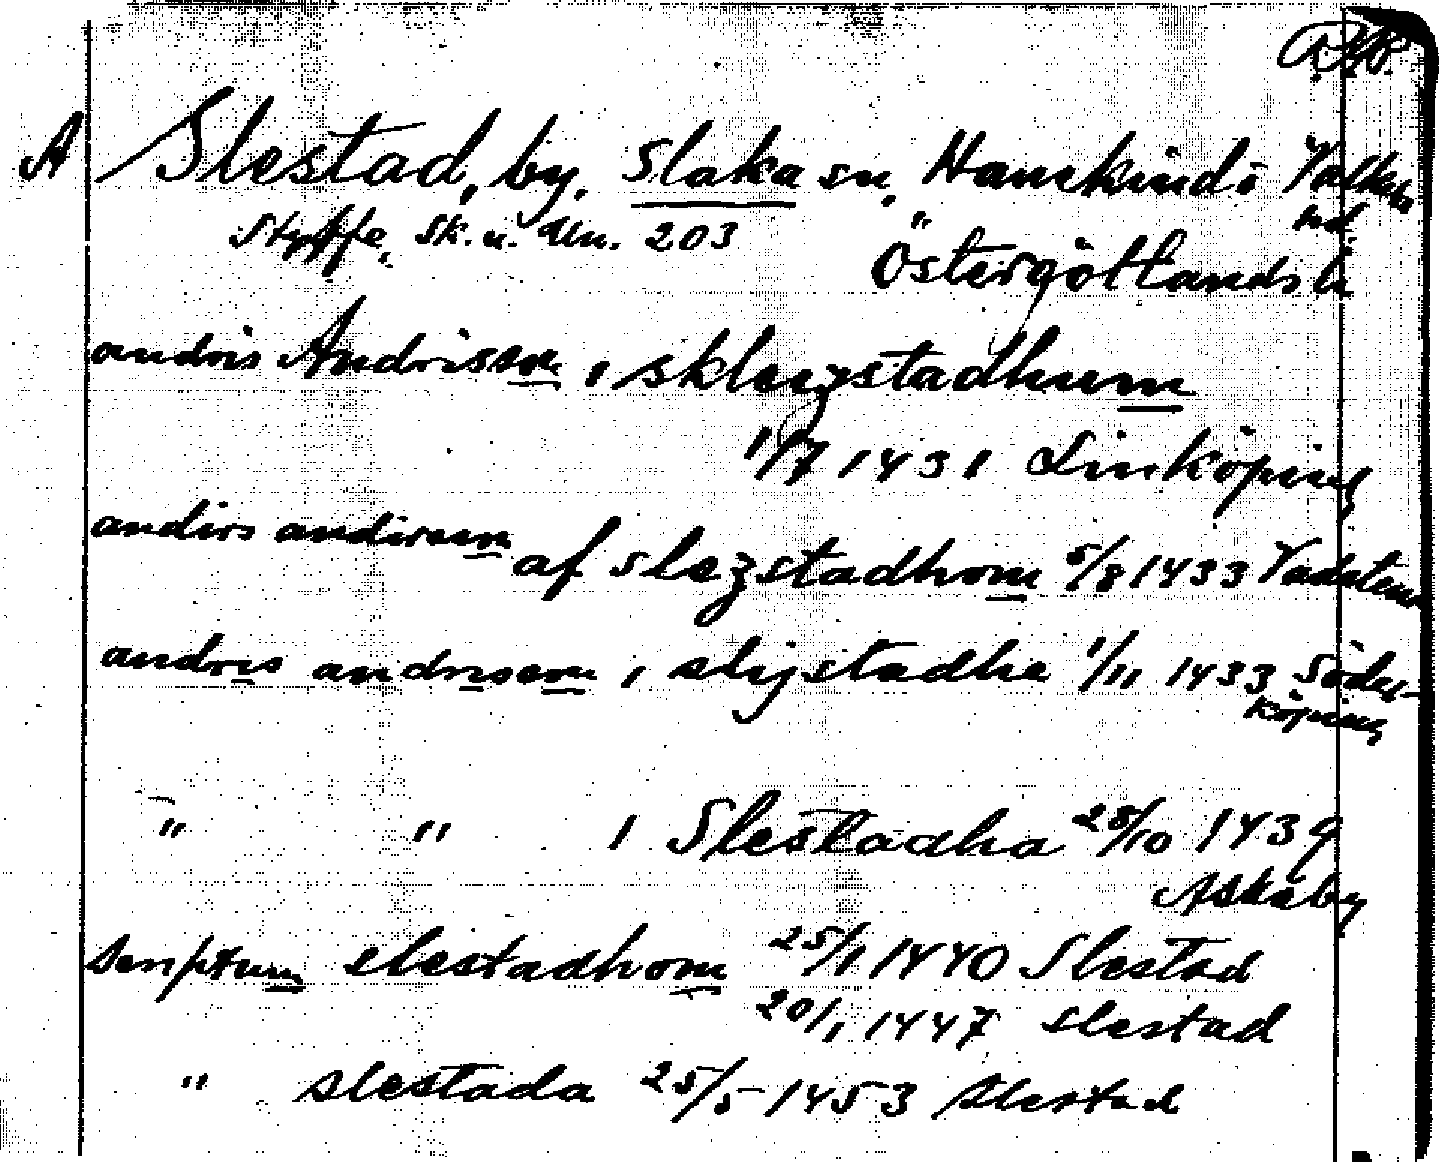 A Slestad, by, Slaka sn, Hanekinds Valkebo
hd.
Styffe, Sk. u. Un. 203
Östergötlands l.
andris Andrisson i skleystadhum
1/7 1431 Linköping
andirs andirsson af slezstadhom 5/8 1433 Vadstena
andris andrisson i slijstadhe 1/11 1433 Söder-
köping
" " i Slestadha 28/10 1439
Askeby
Scriptum slestadhom 25/1 1440 Slestad
20/1 1447 Slestad
" slestada 25/5 1453 Slestad